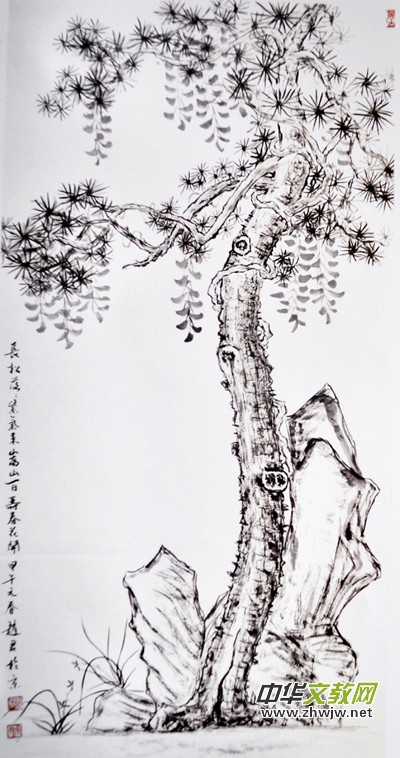 長松落紫氣來嵩山百壽春花開 甲午元春趙於京
中华文教网
www.zhwjw.net